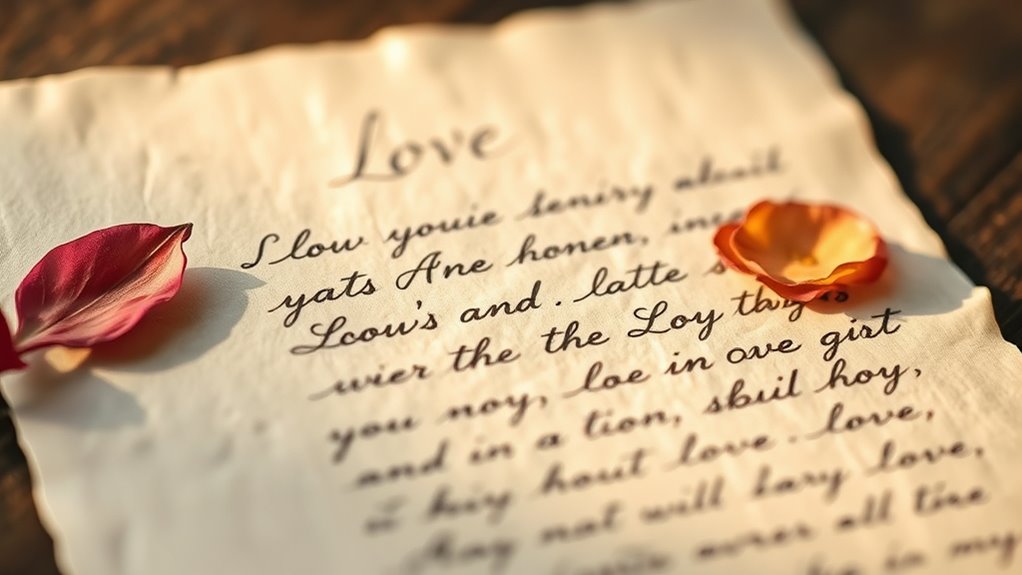 Love
Slow youie seniry
yats Ane honen,
Lcow's and. latte
wier the the Loy
you noy, loe in ove gist
and in a tion, sbuil hoy,
it hiy hout love. love,
not will lary love,
all tine
in my